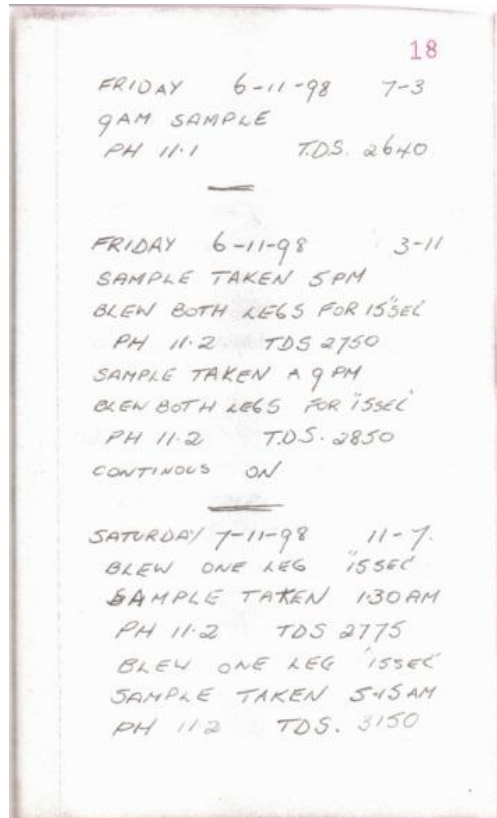 18
FRIDAY 6-11-98 7-3
9AM SAMPLE
PH 11.1 T.D.S. 2640
FRIDAY 6-11-98 3-11
SAMPLE TAKEN 5PM
BLEW BOTH LEGS FOR 15"SEC
PH 11.2 TDS 2750
SAMPLE TAKEN A 9 PM
BLEW BOTH LEGS FOR "15SEC
PH 11.2 T.D.S. 2850
CONTINOUS ON
SATURDAY 7-11-98 11-7.
BLEW ONE LEG "15SEC"
SAMPLE TAKEN 1.30AM
PH 11.2 TDS 2775
BLEW ONE LEG "15SEC"
SAMPLE TAKEN 5.45AM
PH 11.2 TDS. 3150